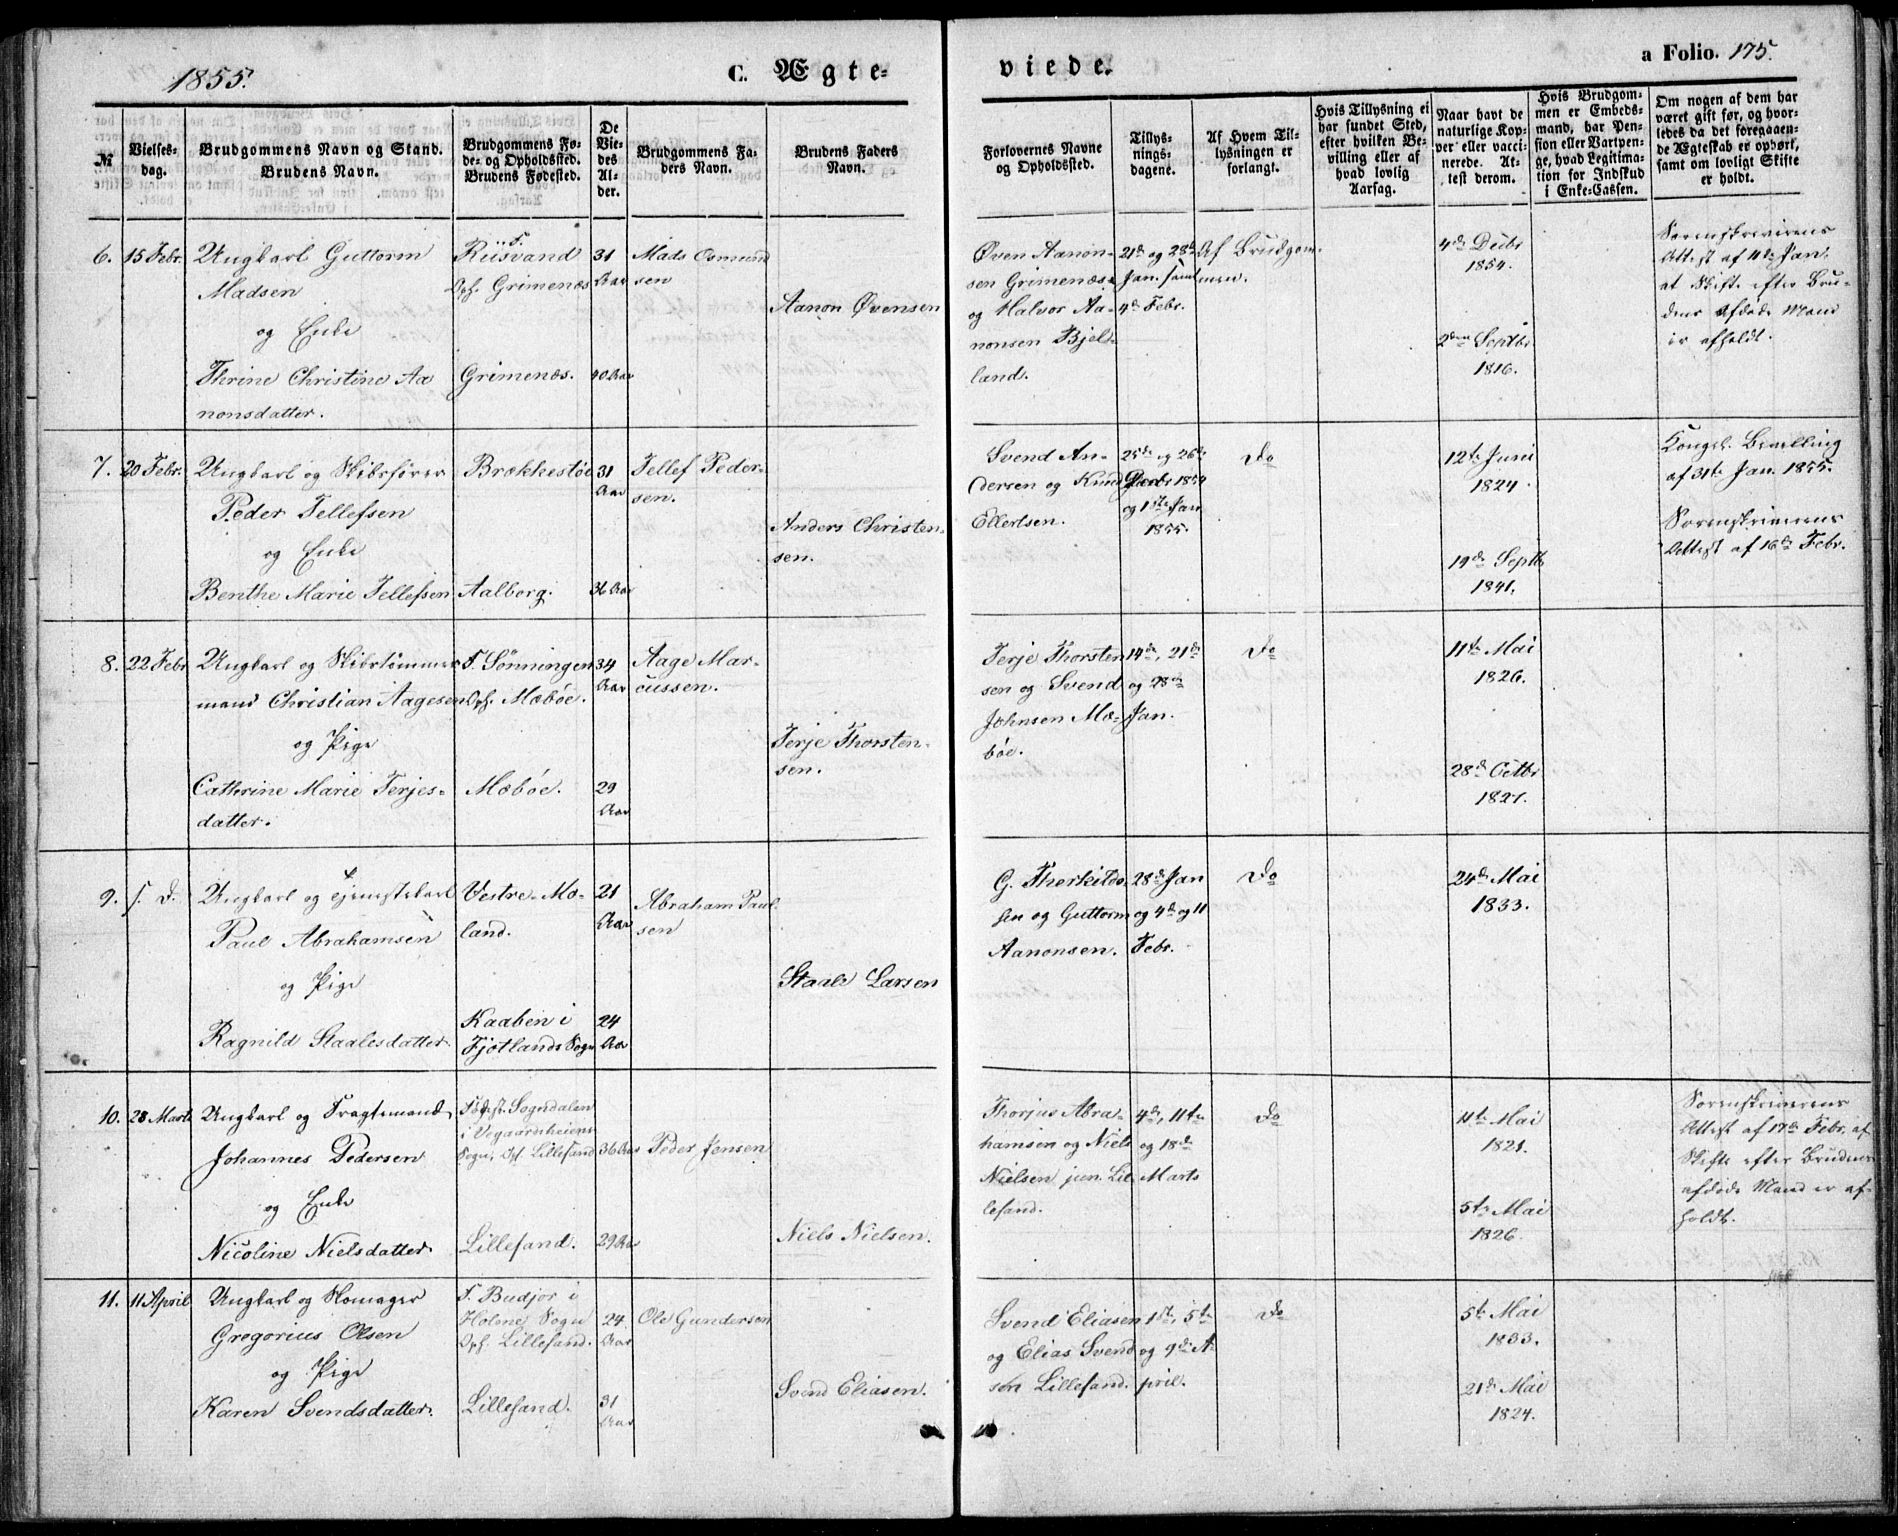 1855.
C. Ægte-
viede.
a Folio. 175.
№
Vielses-
dag.
Brudgommens Navn og Stand.
Brudens Navn.
Brudgommens Fø-
de- og Opholdssted.
Brudens Fødested.
De
Vie-
des
Al-
der.
Brudgommens Fa-
ders Navn.
Brudens Faders
Navn.
Forlovernes Navne
og Opholdssted.
Tillys-
nings-
dagene.
Af Hvem Til-
lysningen er
forlangt.
Hvis Tillysning ei
har fundet Sted,
efter hvilken Be-
villing eller af
hvad lovlig
Aarsag.
Naar havt de
naturlige Kop-
per eller vacci-
nerede. At-
test derom.
Hvis Brudgom-
men er Embeds-
mand, har Pen-
sion eller Vartpen-
ge, hvad Legitima-
tion for Indskud
i Enke-Cassen.
Om nogen af dem har
været gift før, og hvor-
ledes da det foregaaen-
de Ægteskab er ophørt,
samt om lovligt Skifte
er holdt.
6.
15 Febr.
Ungkarl Guttorm
Madsen
og Enke
Thrine Christine Aa
nonsdatter.
F.
Riisvand
Oph. Grimenæs
Grimenæs.
31
Aar
40 Aar
Mads Osmund
sen
Aanon Øvensen
Øven Aanon-
sen Grimenæs
og Halvor Aa-
nonsen Bjel-
land.
21de og 28de
Jan. samt
4de Febr.
Af Brudgom-
men.
4de Decbr
1854.
2den Septbr
1816.
Sorenskriverens
Attest af 4de Jan.
at Skifte efter Bru-
dens afdøde Mand
er afholdt.
7.
20 Febr.
Ungkarl og Skibsfører
Peder Tellefsen
og Enke
Benthe Marie Tellefsen
Brækkestøe
Aalborg.
31
Aar
36 Aar
Tellef Peder-
sen.
Anders Christen-
sen.
Svend An-
dersen og Knud
Ellertsen.
25de og 26de
Decbr 1854
og 1ste Jan
1855.
Do
12te Juni
1824.
19de Septb
1841.
Kongel. Bevilling
af 31te Jan. 1855.
Sorenskriverens
Attest af 16de Febr.
8.
22 Febr
Ungkarl og Skibstømmer
mand Christian Aagesen
og Pige
Cathrine Marie Terjes-
datter.
F. Sønningen
Oph. Mæbøe.
Mæbøe.
34
Aar
29
Aar
Aage Mar-
cussen.
Terje Thorsten-
sen.
Terje Thorsten
sen og Svend
Johnsen Mæ-
bøe.
14de, 21de
og 28de
Jan.
Do
11te Mai
1826.
28de Octbr
1827.
9.
s. D.
Ungkarl og Tjenestekarl
Paul Abrahamsen
og Pige
Ragnild Staalesdatter.
Vestre-Mo-
land.
Kaaben i
Fjotlands Sogn
21
Aar
24
Aar
Abraham Paul
sen
Staale Larsen
G. Therkilds-
sen og Guttorm
Aanonsen.
28de Jan
og 4de og 11
Febr.
Do
24de Mai
1833.
10.
28 Marts
Ungkarl og Fragtemand
Johannes Pedersen
og Enke
Nicoline Nielsdatter.
Fødest. Sogndalen
i Vegaardsheiens
Sogn, Oph. Lillesand
Lillesand.
36 Aar
29 Aar
Peder Jensen
Niels Nielsen.
Thorjus Abra-
hamsen og Niels
Nielsen jun. Lil-
lesand.
4de, 11te
og 18de
Marts
Do
11te Mai
1821.
5te Mai
1826.
Sorenskriverens
Attest af 17de Febr. at
Skifte efter Brudens
afdøde Mand er af-
holdt.
11.
11 April
Ungkarl og Skomager
Gregorius Olsen
og Pige
Karen Svendsdatter.
F. Budjor i
Holme Sogn
Oph. Lillesand.
Lillesand.
24
Aar
31
Aar
Ole Gundersen
Svend Eliasen.
Svend Eliasen
og Elias Svend
sen Lillesand.
1ste, 5te
og 9de A-
pril.
Do
5te Mai
1833.
21de Mai
1824.